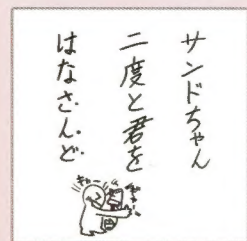 サンドちゃん
二度と君を
はなさんど
ぎゅ
ぎゅー